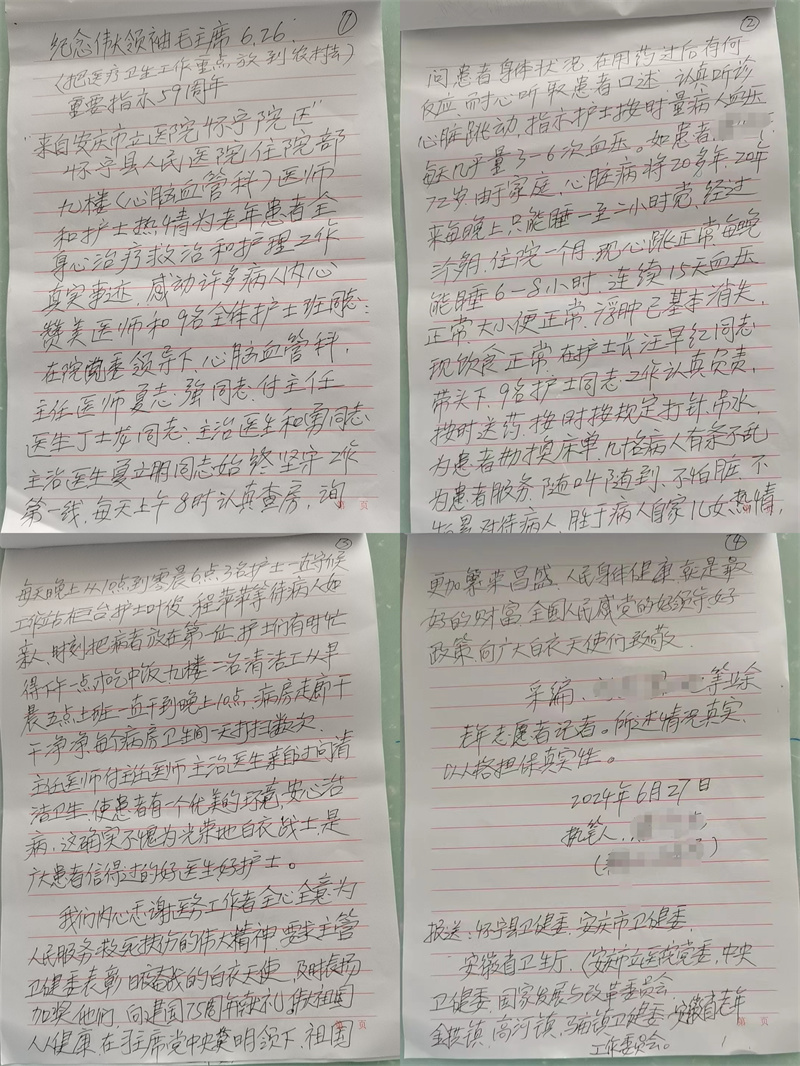 ①
纪念伟大领袖毛主席6.26:
(把医疗卫生工作重点放到农村去)
重要指示59周年
"来自安庆市立医院怀宁院区"
怀宁县人民医院住院部
九楼(心脑血管科)医师
和护士热情为老年患者全
身心治疗救治和护理工作
真实事迹,感动许多病人内心
赞美医师和9名全体护士班同志:
在院党委领导下、心脑血管科,
主任医师夏志强同志、付主任
医生丁士龙同志、主治医生和勇同志、
主治医生夏立朋同志始终坚守工作
第一线,每天上午8时认真查房,询
第 页
②
问患者身体状况,在用药过后有何
反应,耐心听取患者口述,认真听诊
心脏跳动,指示护士按时量病人血压
每天几乎量3-6次血压。如患者.
72岁,由于家庭,心脏病将20多年,20年
来每晚上只能睡一至二小时觉,经过
治疗,住院一个月,现心跳正常,每晚
能睡6-8小时,连续15天血压
正常,大小便正常,浮肿已基本消失,
现饮食正常,在护士长汪早红同志
带头下,9名护士同志,工作认真负责,
按时送药,按时按规定打针、吊水,
为患者勤换床单,几十名病人有条不乱
为患者服务,随叫随到,不怕脏,不
怕累,对待病人,胜于病人自家儿女,热情,
③
每天晚上从10点到零晨6点,3名护士一直守候
工作站柜台,护士叶俊,程苹苹等待病人如
亲人,时刻把病者放在第一位,护士们有时忙
得下午一点才吃中饭,九楼二名清洁工从早
晨五点上班一直干到晚上10点,病房走廊干
干净净,每个病房卫生间一天打扫数次,
主任医师付主任医师,主治医生亲自过问清
洁卫生,使患者有一个优美的环境,安心治
病,这确实不愧为光荣地白衣战士,是
广大患者信得过的好医生好护士。
我们内心感谢医务工作者全心全意为
人民服务,救死扶伤的伟大精神,要求主管
卫健委表彰的白衣天使,及时表扬
加奖他们,向建国75周年献礼,伟大祖国
人人健康,在习主席党中央英明领下,祖国
第 页
④
更加繁荣昌盛,人民身体健康,就是最
好的财富,全国人民感党的好领导好
政策,向广大白衣天使们致敬,
采编:
老年志愿者记者。所述情况真实,
以人格担保真实性。
2024年6月27日
执笔人:
报送:怀宁县卫健委,安庆市卫健委,
安徽省卫生厅,(安庆市立医院党委,中央
卫健委,国家发展与改革委员会
金拱镇,高河镇,马庙镇卫健委,安徽省老年
工作委员会。